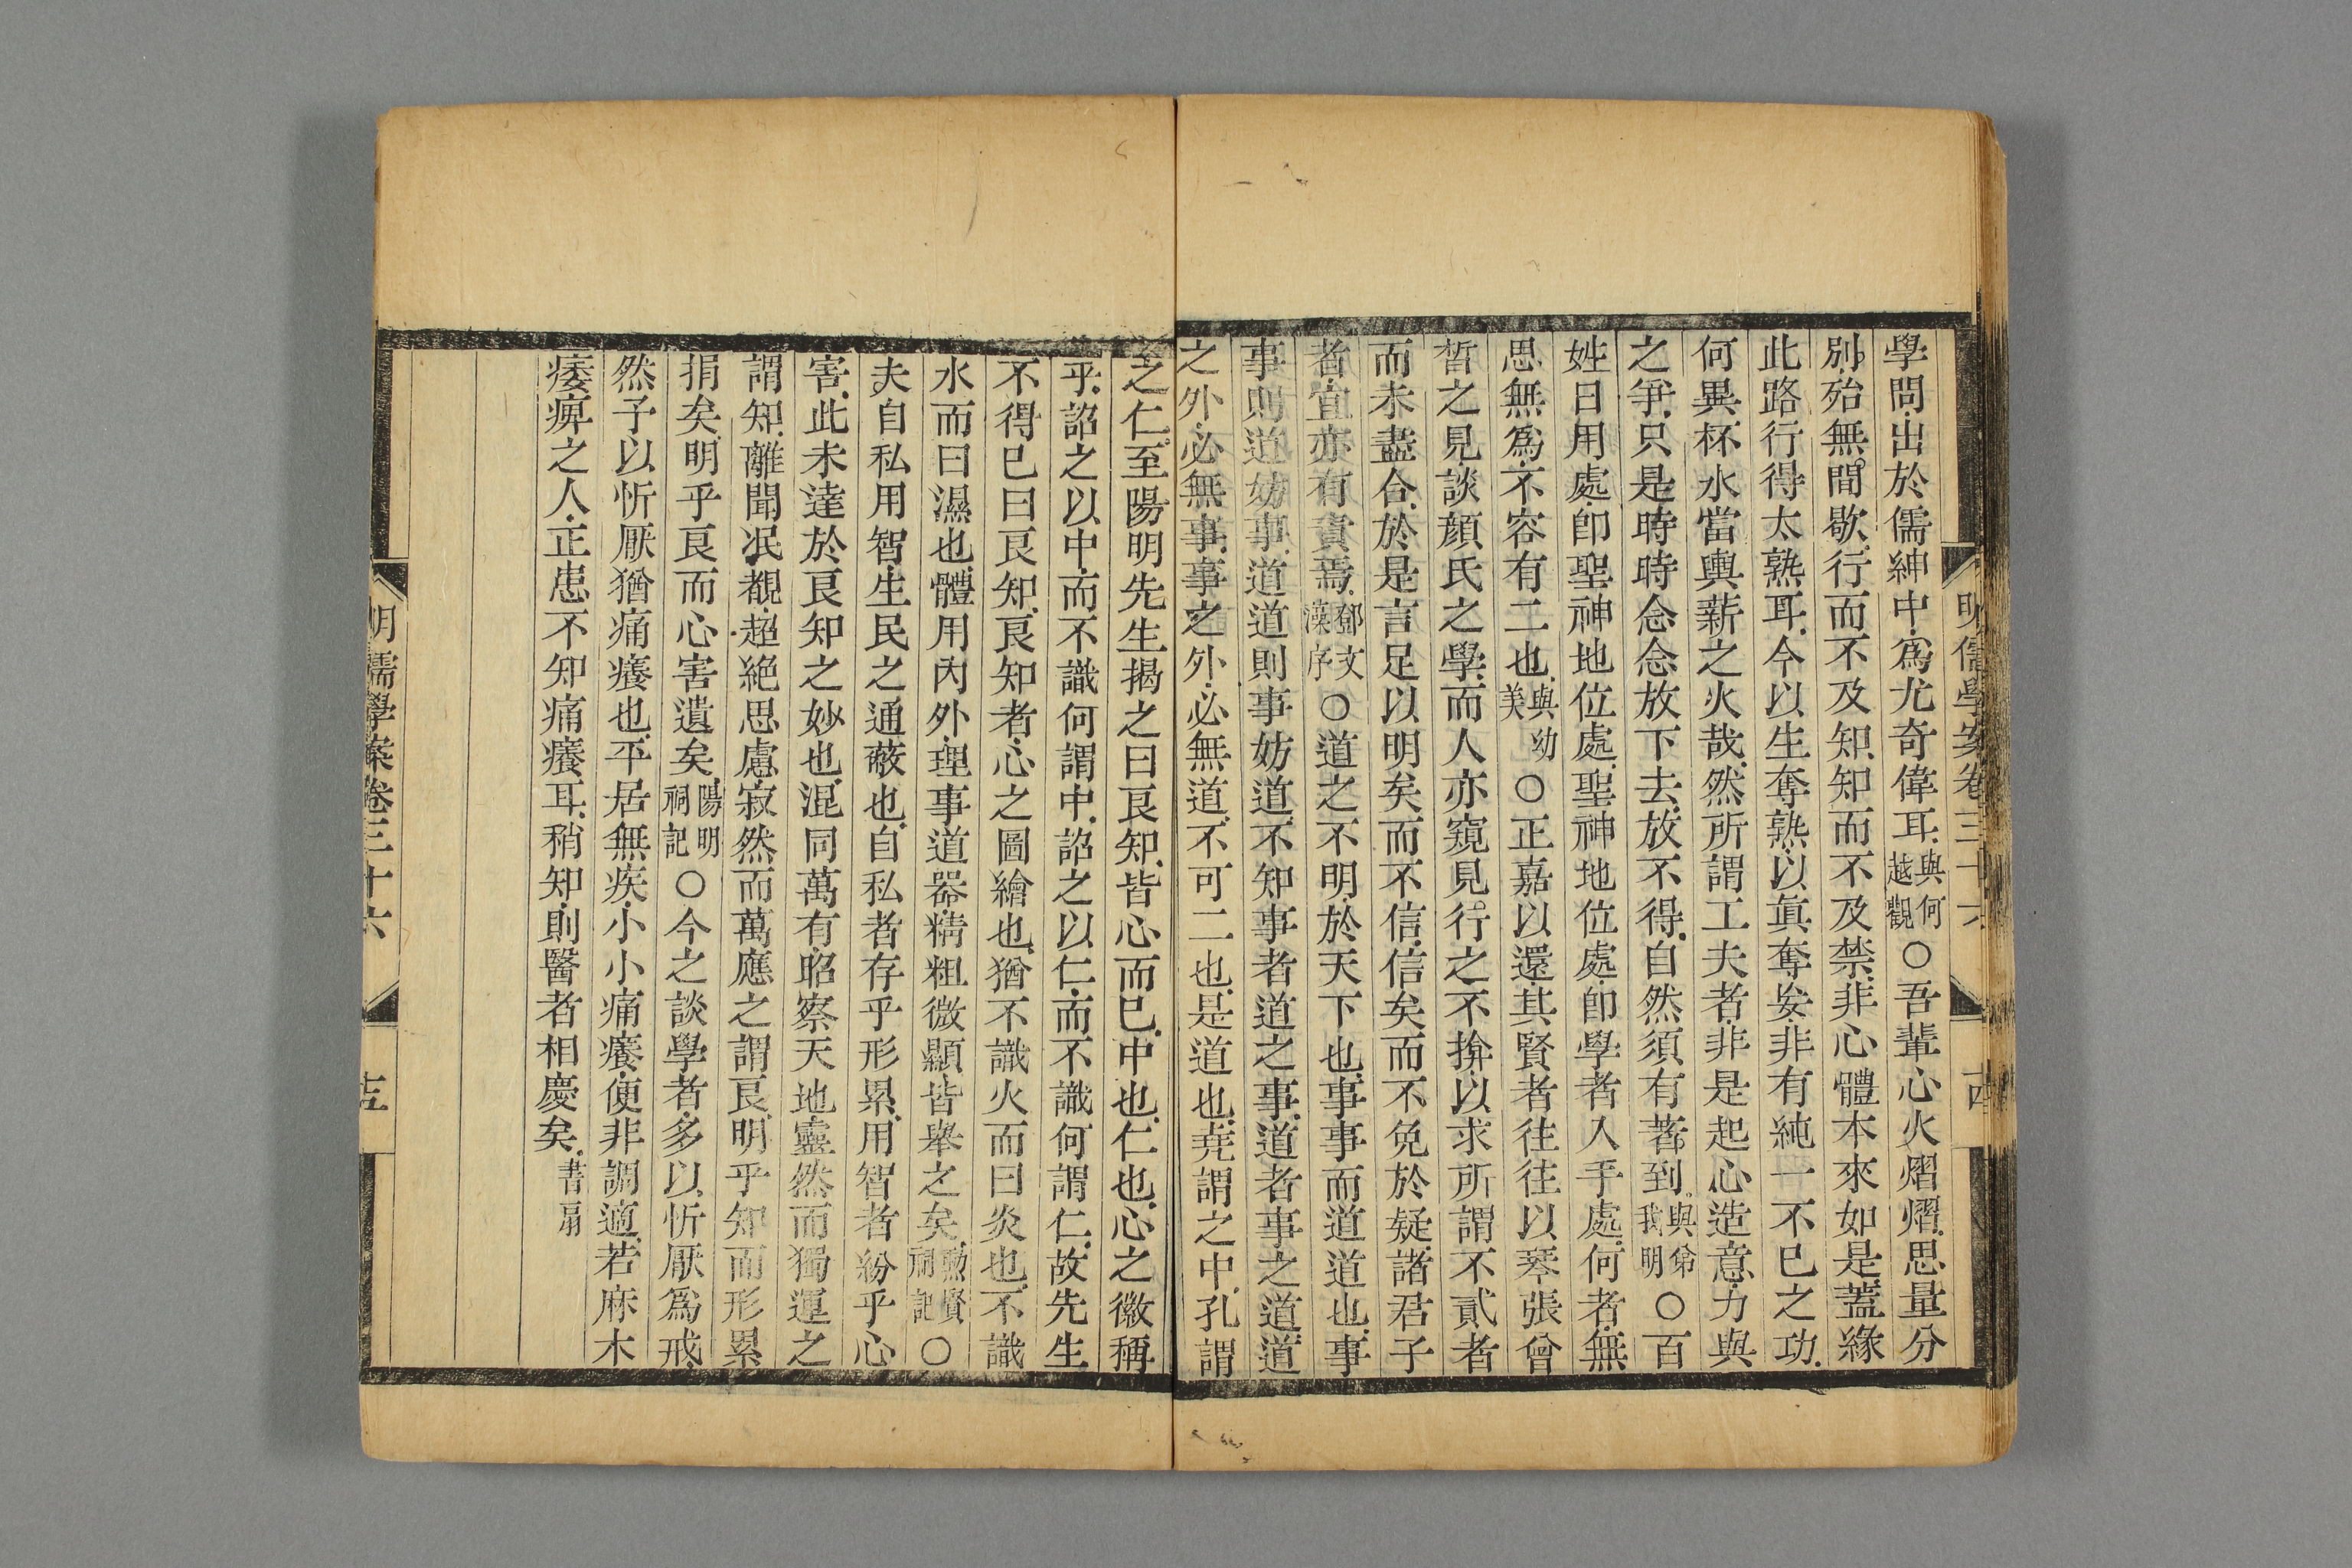 明儒學案卷三十六
學問出於儒紳中爲尤奇偉耳與何越觀○吾輩心火熠熠思量分
別殆無間歇行而不及知知而不及禁非心體本來如是蓋緣
此路行得太熟耳今以生奪熟以眞奪妄非有純一不已之功
何異杯水當輿薪之火哉然所謂工夫者非是起心造意力與
之爭只是時時念念放下去放不得自然須有著到與俞我明○百
姓日用處卽聖神地位處聖神地位處卽學者入手處何者無
思無爲不容有二也與幼美○正嘉以還其賢者往往以琴張曾
晳之見談顏氏之學而人亦窺見行之不揜以求所謂不貳者
而未盡合於是言足以明矣而不信信矣而不免於疑諸君子
者宜亦有責焉鄧文潔序○道之不明於天下也事事而道道也事
事則道妨事道道則事妨道不知事者道之事道者事之道道
之外必無事事之外必無道不可二也是道也堯謂之中孔謂
之仁至陽明先生揭之曰良知皆心而已中也仁也心之徽稱
乎詔之以中而不識何謂中詔之以仁而不識何謂仁故先生
不得已曰良知良知者心之圖繪也猶不識火而曰炎也不識
水而曰濕也體用內外理事道器精粗微顯皆舉之矣勲賢祠記○
夫自私用智生民之通蔽也自私者存乎形累用智者紛乎心
害此未達於良知之妙也混同萬有昭察天地靈然而獨運之
謂知離聞泯覩超絕思慮寂然而萬應之謂良明乎知而形累
捐矣明乎良而心害遺矣陽明祠記○今之談學者多以忻厭爲戒
然予以忻厭猶痛癢也平居無疾小小痛癢便非調適若麻木
痿痹之人正患不知痛癢耳稍知則醫者相慶矣書扇
明儒學案卷三十六